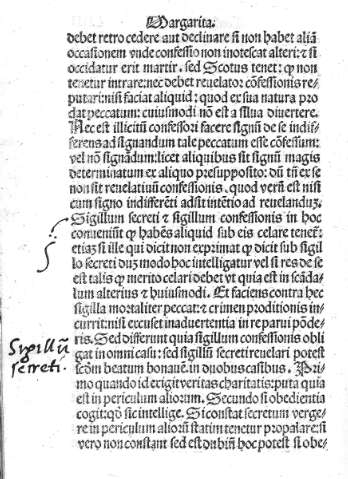 Margarita.
debet retro cedere aut declinare si non habet aliã
occasionem vnde confessio non inotescat alteri: ⁊ si
occidatur erit martir. sed Scotus tenet: ꝙ non
tenetur intrare: nec debet reuelator cõfessionis re-
putari: nisi faciat aliquid: quod ex sua natura pro
dat peccatum: cuiusmodi nõ est a silua diuertere.
Nec est illicitũ confessori facere signũ de se indif-
ferens ad signandum tale peccatum esse cõfessum:
vel nõ signãdum: licet aliquibus sit signũ magis
determinatum ex aliquo presupposito: dũ tñ ex se
non sit reuelatiuũ confessionis. quod verũ est nisi
cum signo indifferẽti adsit intẽtio ad reuelanduz.
Sigillum secreti ⁊ sigillum confessionis in hoc
conueniũt ꝙ habẽs aliquid sub eis celare tenet̃:
etiaz si ille qui dicit non exprimat ꝙ dicit sub sigil
lo secreti duz modo hoc intelligatur vel si res de se
est talis ꝙ merito celari debet vt quia est in scãda-
lum alterius ⁊ huiusmodi. Et faciens contra hec
sigilla mortaliter peccat: ⁊ crimen proditionis in-
currit: nisi excuset inaduertentia in re parui põde-
ris. Sed differunt quia sigillum confessionis obli
gat in omni casu: sed sigillũ secreti reuelari potest
scḋm beatum bonauẽ. in duobus casibus. Pri-
mo quando id exigit veritas charitatis: puta quia
est in periculum aliorum. Secundo si obedientia
cogit: qḋ sic intellige. Si constat secretum verge-
re in periculum aliorũ statim tenetur propalare: si
vero non constant sed est dubiũ hoc potest si obe-
Sygillũ
secreti.